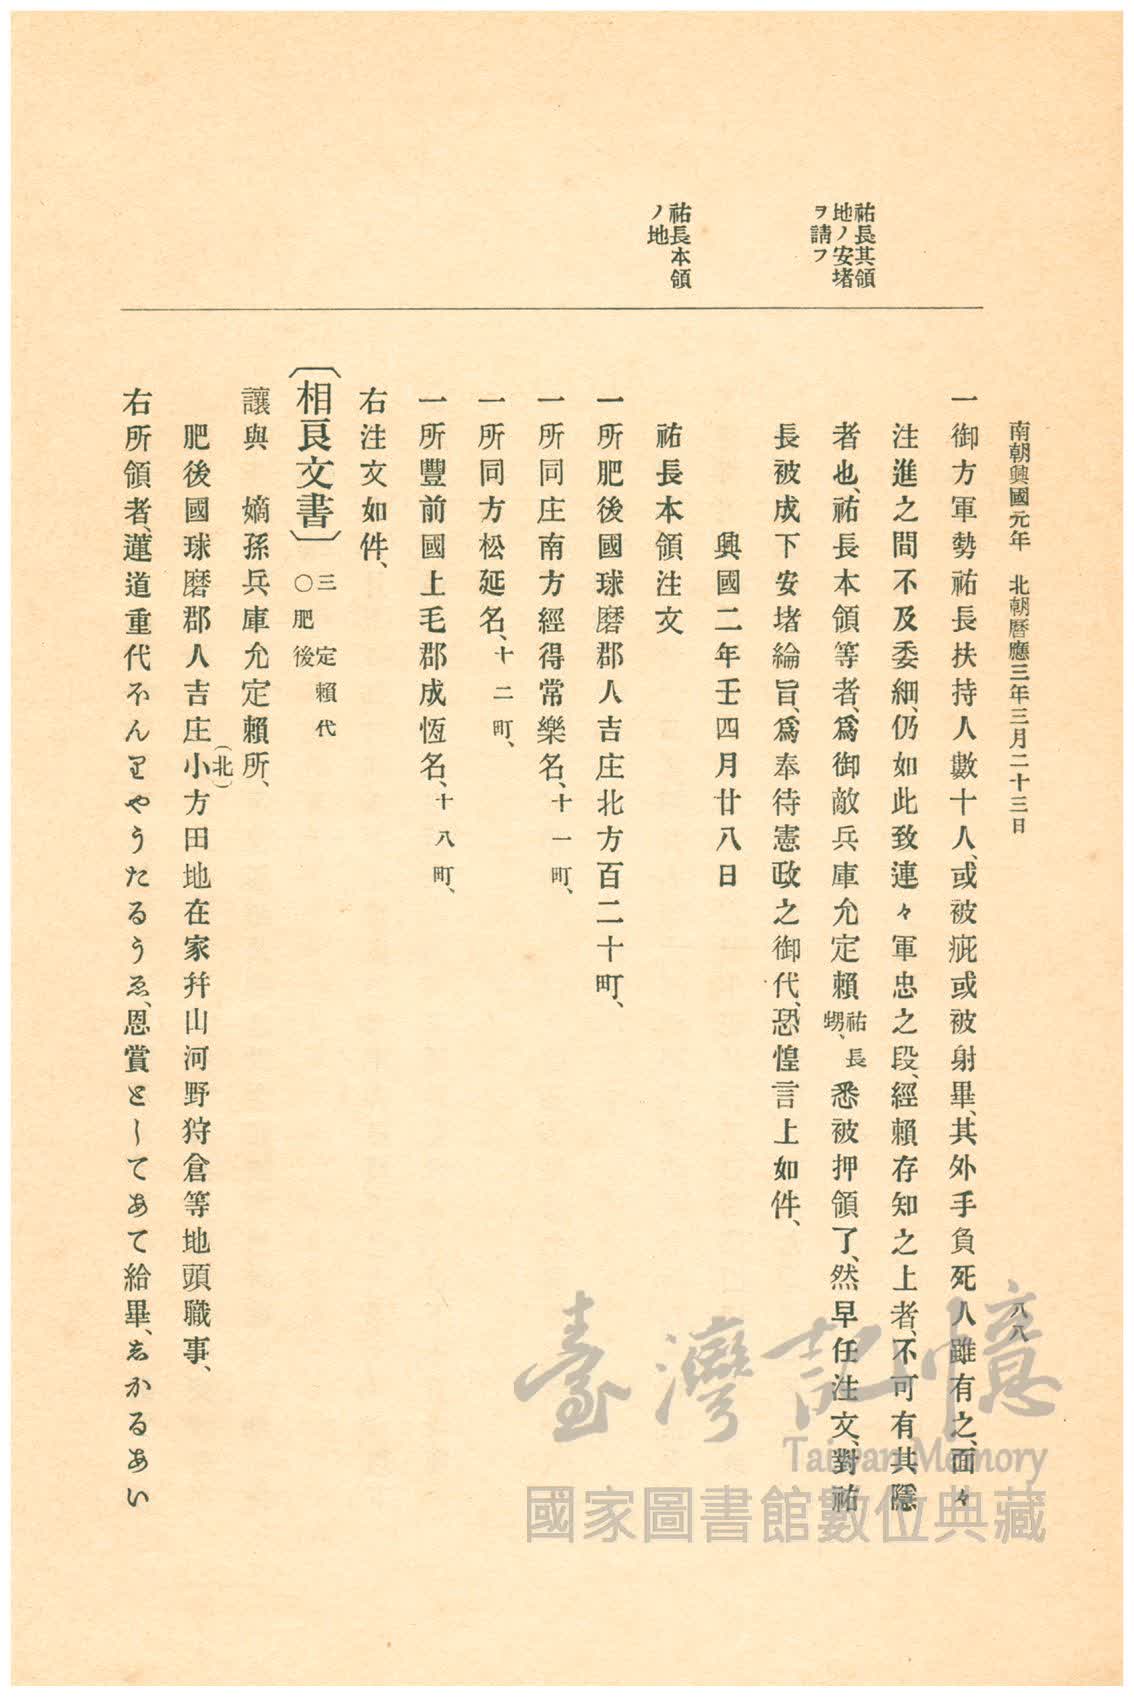 南朝興國元年　北朝曆應三年三月二十三日
八八
祐長其領
地ノ安堵
ヲ請フ
祐長本領
ノ地
一御方軍勢祐長扶持人數十人、或被疵或被射畢、其外手負死人雖有之、面々
注進之間不及委細、仍如此致連々軍忠之段、經賴存知之上者、不可有其隱
者也、祐長本領等者、爲御敵兵庫允定賴祐長甥、悉被押領了、然早任注文、對祐
長被成下安堵綸旨、爲奉待憲政之御代、恐惶言上如件、
興國二年壬四月廿八日
祐長本領注文
一所肥後國球磨郡人吉庄北方百二十町、
一所同庄南方經得常樂名、十一町、
一所同方松延名、十二町、
一所豐前國上毛郡成恆名、十八町、
右注文如件、
〔相良文書〕三　定賴代○肥後
讓與　嫡孫兵庫允定賴所、
肥後國球磨郡人吉庄小(北)方田地在家幷山河野狩倉等地頭職事、
右所領者、蓮道重代ふんとやうたるうゑ、恩賞として あて給畢、志かるあい
臺灣記憶
Taiwan Memory
國家圖書館數位典藏